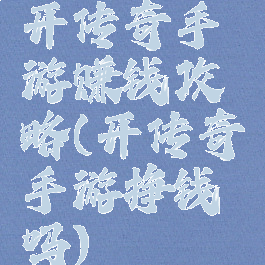 开传奇手
游赚钱攻
略(开传奇
手游挣钱
吗)